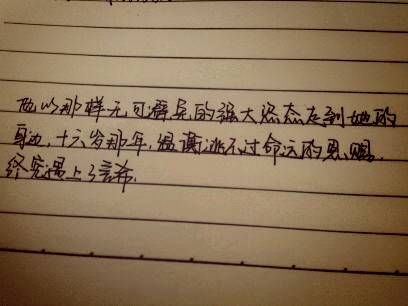 他以那样无可避免的强大姿态走到她的
身边,十六岁那年,温蔼逃不过命运的恩赐,
终究遇上了言希.